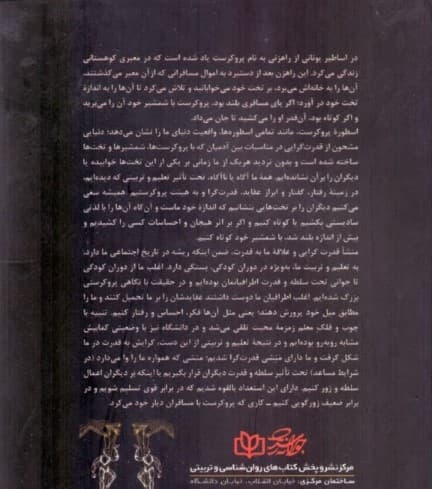 در اساطیر یونانی از راهزنی به نام پروکرست یاد شده است که در معبری کوهستانی
زندگی می‌کرد. این راهزن بعد از دستبرد به اموال مسافرانی که از آن معبر می‌گذشتند،
آن‌ها را به خانه‌اش می‌برد، بر تخت خود می‌خوابانید و تلاش می‌کرد تا آن‌ها را به اندازهٔ
تخت خود در آورد: اگر پای مسافری بلند بود، پروکرست با شمشیر خود آن را می‌برید
و اگر کوتاه بود، آن‌قدر او را می‌کشید تا جان می‌داد.
اسطورهٔ پروکرست، مانند تمامی اسطوره‌ها، واقعیت دنیای ما را نشان می‌دهد؛ دنیایی
مشحون از قدرت‌گرایی در مناسبات بین آدمیان که با پروکرست‌ها، شمشیرها و تخت‌ها
ساخته شده است و بدون تردید هریک از ما زمانی بر یکی از این تخت‌ها خوابیده یا
دیگران را بر آن نشانده‌ایم. همهٔ ما آگاه یا ناآگاه، تحت تأثیر تعلیم و تربیتی که دیده‌ایم،
در زمینهٔ رفتار، گفتار و ابراز عقاید، قدرت‌گرا و به هیئت پروکرستیم. همیشه سعی
می‌کنیم دیگران را بر تخت‌هایی بنشانیم که اندازهٔ خود ماست و آن‌گاه آن‌ها را با لذتی
سادیستی بکشیم یا کوتاه کنیم و اگر بر اثر هیجان و احساسات کسی را کشیدیم و
بیش از اندازه بلند شد، با شمشیر خود کوتاه کنیم.
منشأ قدرت گرایی و علاقهٔ ما به قدرت، ضمن اینکه ریشه در تاریخ اجتماعی ما دارد،
به تعلیم و تربیت ما، به‌ویژه در دوران کودکی، بستگی دارد. اغلب ما از دوران کودکی
تا جوانی تحت سلطه و قدرت اطرافیانمان بوده‌ایم و در حقیقت با نگاهی پروکرستی
بزرگ شده‌ایم. اغلب اطرافیان ما دوست داشتند عقایدشان را بر ما تحمیل کنند و ما را
مطابق میل خود پرورش دهند؛ یعنی مثل آن‌ها فکر، احساس و رفتار کنیم. تنبیه با
چوب و فلک معلم زمزمهٔ محبت تلقی می‌شد و در دانشگاه نیز با وضعیتی کمابیش
مشابه روبه‌رو بوده‌ایم و در نتیجهٔ تعلیم و تربیتی از این دست، گرایش به قدرت در ما
شکل گرفت و ما دارای منشی قدرت‌گرا شدیم؛ منشی که همواره ما را وا می‌دارد (در
شرایط مساعد) تحت تأثیر سلطه و قدرت دیگران قرار بگیریم یا اینکه بر دیگران اعمال
سلطه و زور کنیم. دارای این استعداد بالقوه شدیم که در برابر قوی تسلیم شویم و در
برابر ضعیف زورگویی کنیم ــ کاری که پروکرست با مسافران دیار خود می‌کرد.
مرکز نشر و پخش کتاب‌های روان‌شناسی و تربیتی
ساختمان مرکزی: خیابان انقلاب، خیابان دانشگاه